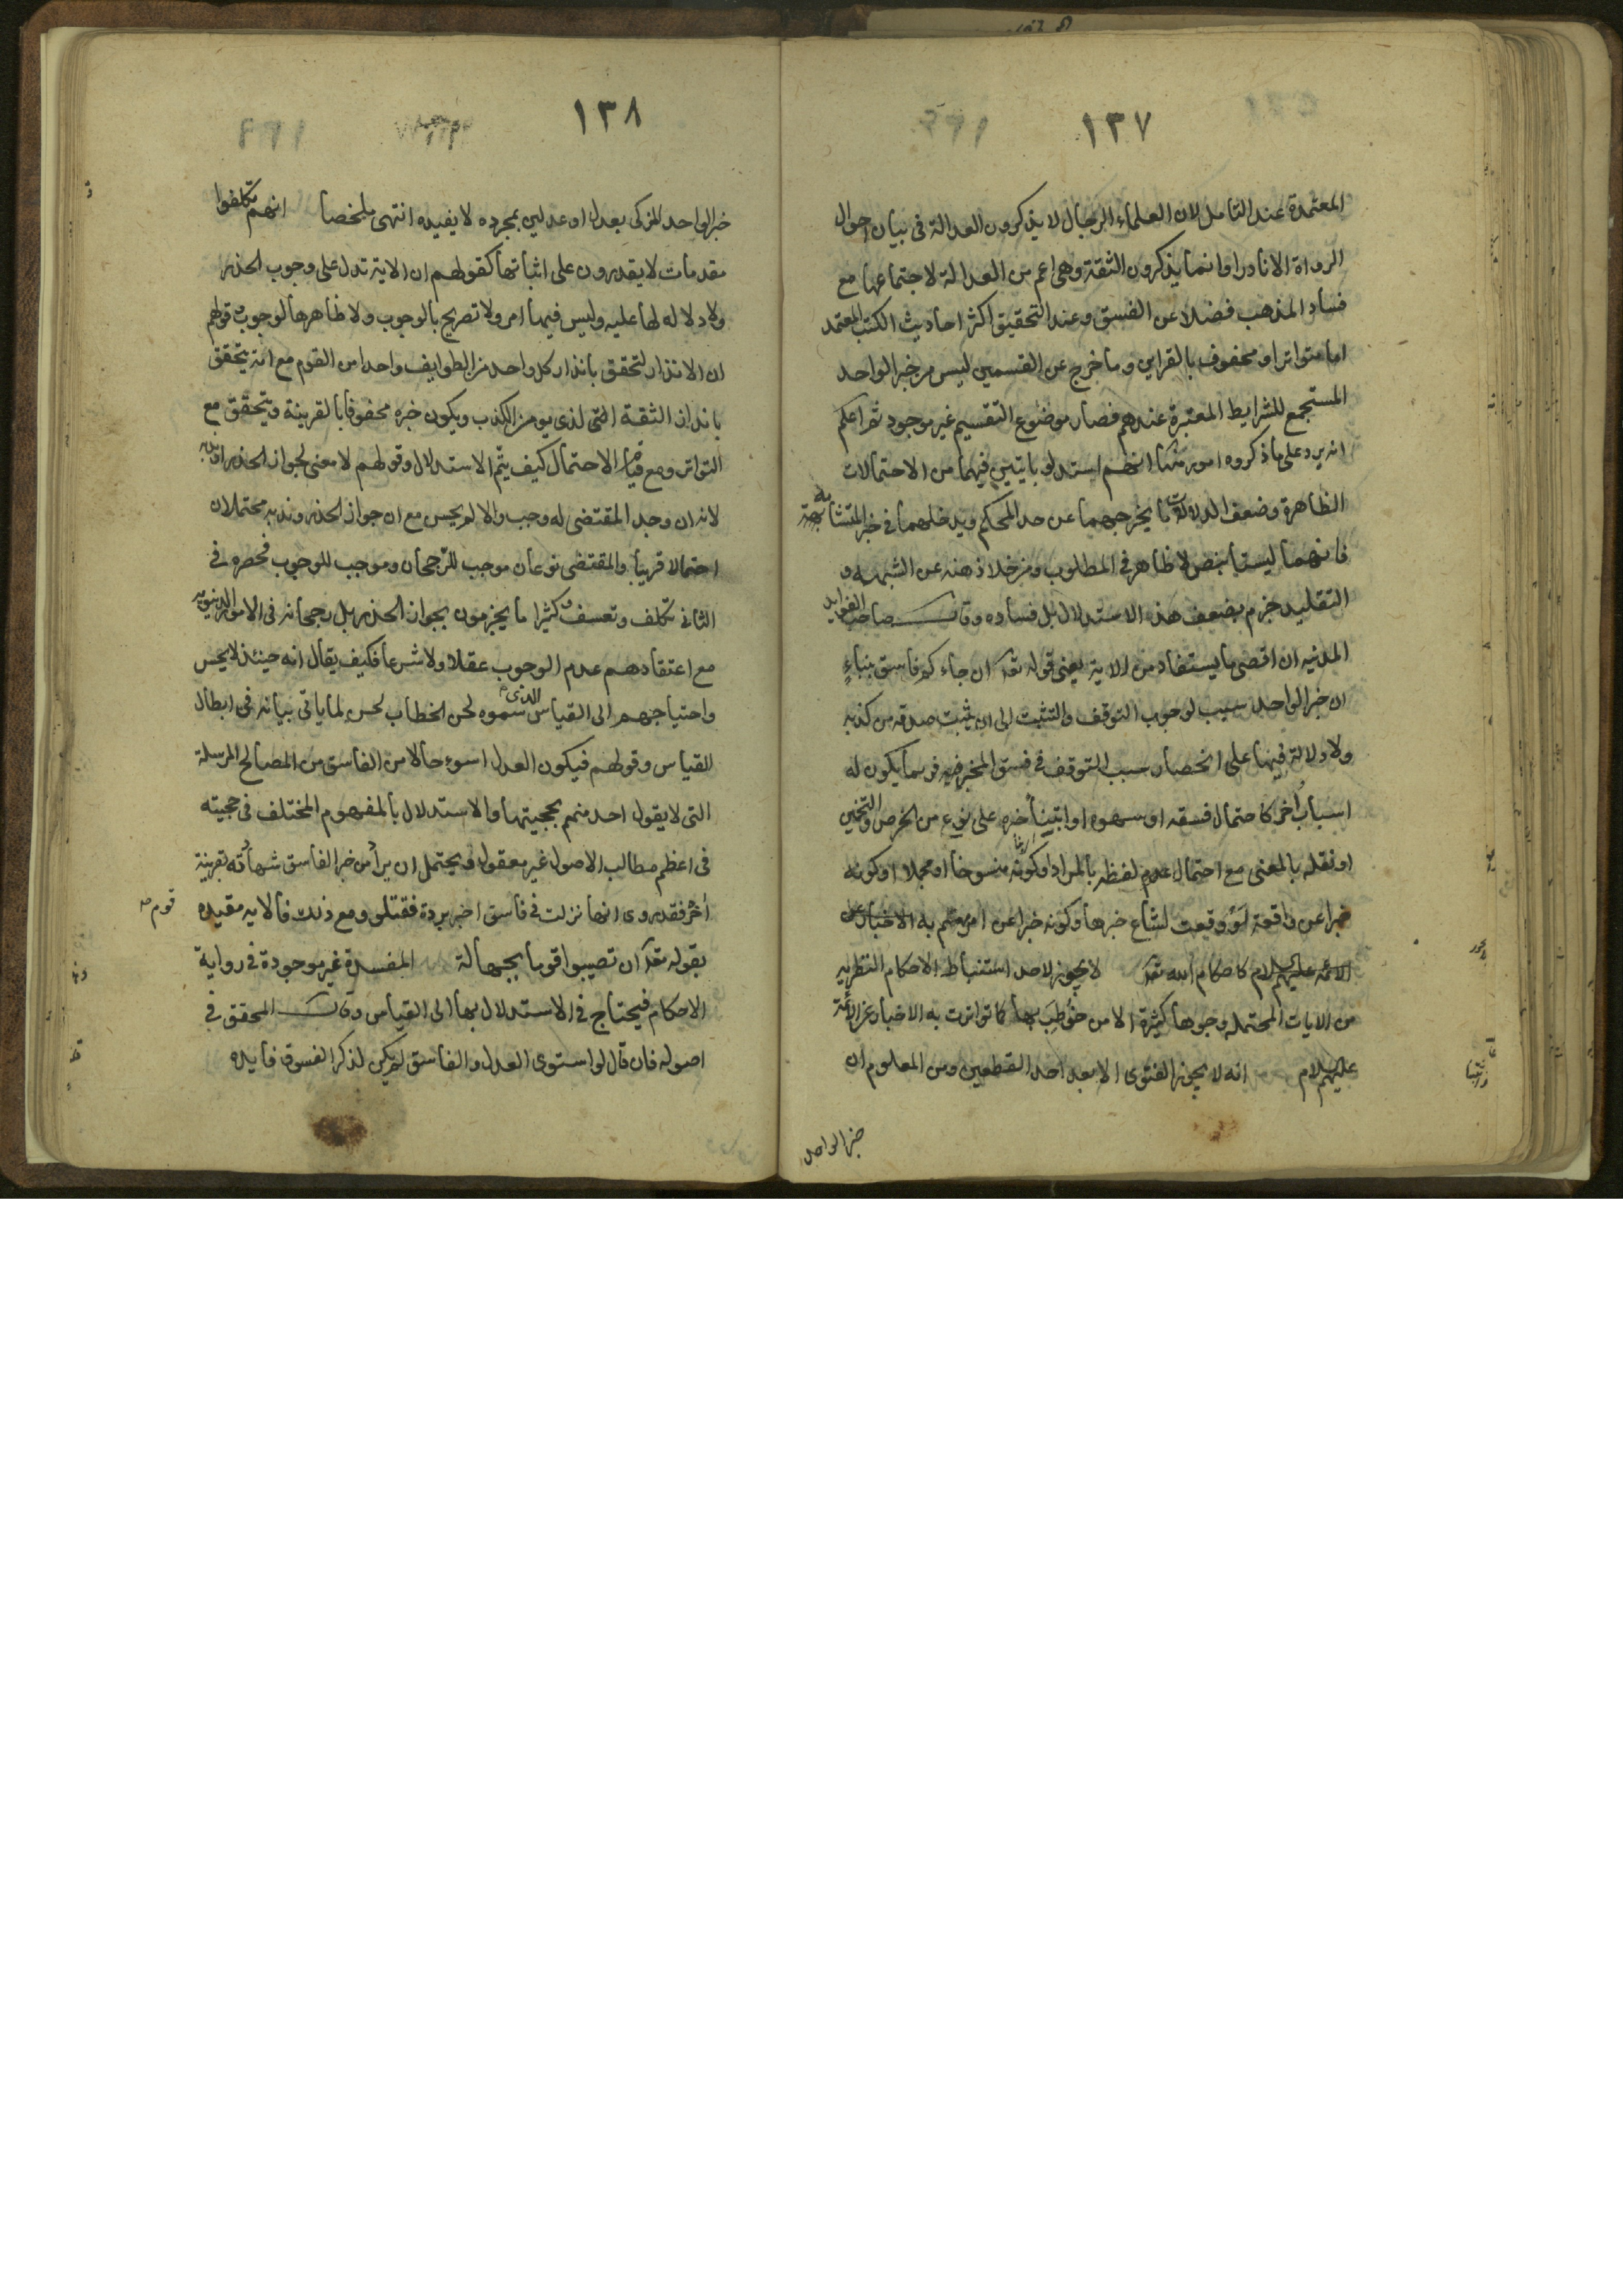 ١٣٧
المعتمدة عند التامل لان العلماء الرجال لا يذكرون العدالة فى بيان احوال
الرواة الا نادرا وانما يذكرون الثقة وهى اعم من العدالة لاجتماعها مع
فساد المذهب فضلا عن الفسق وعند التحقيق اكثر احاديث الكتب المعتمد
اما متواتر او محفوف بالقراين وما خرج عن القسمين ليس من خبر الواحد
المستجمع للشرايط المعتبرة عندهم فصار موضوع التقسيم غير موجود ثم اعلم
انه يرد على ما ذكروه امور منها انهم استدلو بايتين فيهما من الاحتمالات
الظاهرة وضعف الدلالة ما يخرجهما عن حد المحكم ويدخلهما فى المتشابه
فانهما ليستا بنص لا ظاهر فى المطلوب ومن خلا ذهنه عن الشبهه و
التقليد جزم بضعف هذه الاستدلال بل فساده وقال صاحب الفوايد
المدنيه ان اقصى ما يستفاد من الاية يعنى قوله تعالى ان جاءكم فاسق بنباء
ان خبر الواحد سبب لوجوب التوقف والتثبت الى ان يثبت صدقه من كذبه
ولا دلالة فيها على انحصار سبب التوقف فى فسق المخبر فربما يكون له
اسباب اُخر كاحتمال فسقه او سهوه او ابتناء خبره على نوع من الخرص والتخمين
او نقله بالمعنى مع احتمال عدم لفظه بالمراد او كونه منسوخا او مجملا او كونه
خبرا عن واقعة لَوْ وقعت لشاع خبرها وكونه خبرا عن امر مهم به الاخبار عن
الائمه عليهم السلام كاحكام الله تعالى لا يجوز لاحد استنباط الاحكام النظريه
من الايات المحتمله وجوها كثيرة الا من خُوطِبَ بها كما تواترت به الاخبار عن الائمة
عليهم السلام انه لا يجوز الفتوى الا بعد احد القطعين ومن المعلوم ان
خبر الواحد
١٣٨
خبر الواحد المزكى بعدل او عدلين بمجرده لا يفيده انتهى ملخصا انهم تكلفوا
مقدمات لا يقدرون على اثباتها كقولهم ان الاية تدل على وجوب الحذر
ولا دلاله لها عليه وليس فيها امر ولا تصريح بالوجوب ولا ظاهرها لوجوب وقولهم
ان الانذار لتحقق بانذار كل واحد من الطوايف واحدا من القوم مع انه يتحقق
بانذار الثقة التى لذى يومن الكذب ويكون خبره محفوفا بالقرينة ويتحقق مع
التواتر ومع قيام الاحتمال كيف يتم الاستدلال وقولهم لا معنى لجواز الحذر او ندبه
لانه ان وجد المقتضى له وجب والا لم يحسن مع ان جواز الحذر وندبه محتملان
احتمالا قريبا والمقتضى نوعان موجب للرجحان وموجب للوجوب فحصره فى
الثانى تكلف وتعسف وكثيرا ما يجزمون بجواز الحذر بل رجحانه فى الامور الدنيويه
مع اعتقادهم عدم الوجوب عقلا ولا شرعا فكيف يقال انه حينئذ لا يحسن
واحتياجهم الى القياس الذى سموه لحن الخطاب لما ياتى بيانه فى ابطال
القياس وقولهم فيكون العدل اسوء حالا من الفاسق من المصالح المرسلة
التى لا يقول احد منهم بحجيتها والاستدلال بالمفهوم المختلف فى حجيته
فى اعظم مطالب الاصول غير معقول ويحتمل ان يراد من خبر الفاسق شهادته بقرينة
اُخرى فقد روى انها نزلت فى فاسق اخبر بردة قوم فقتلو ومع ذلك فالايه مقيده
بقوله تعالى ان تصيبوا قوما بجهالة المفسدة غير موجودة فى رواية
الاحكام فيحتاج فى الاستدلال بها الى القياس وقال المحقق فى
اصوله فان قال لو استوى العدل والفاسق لم يكن لذكر الفسوق فايده